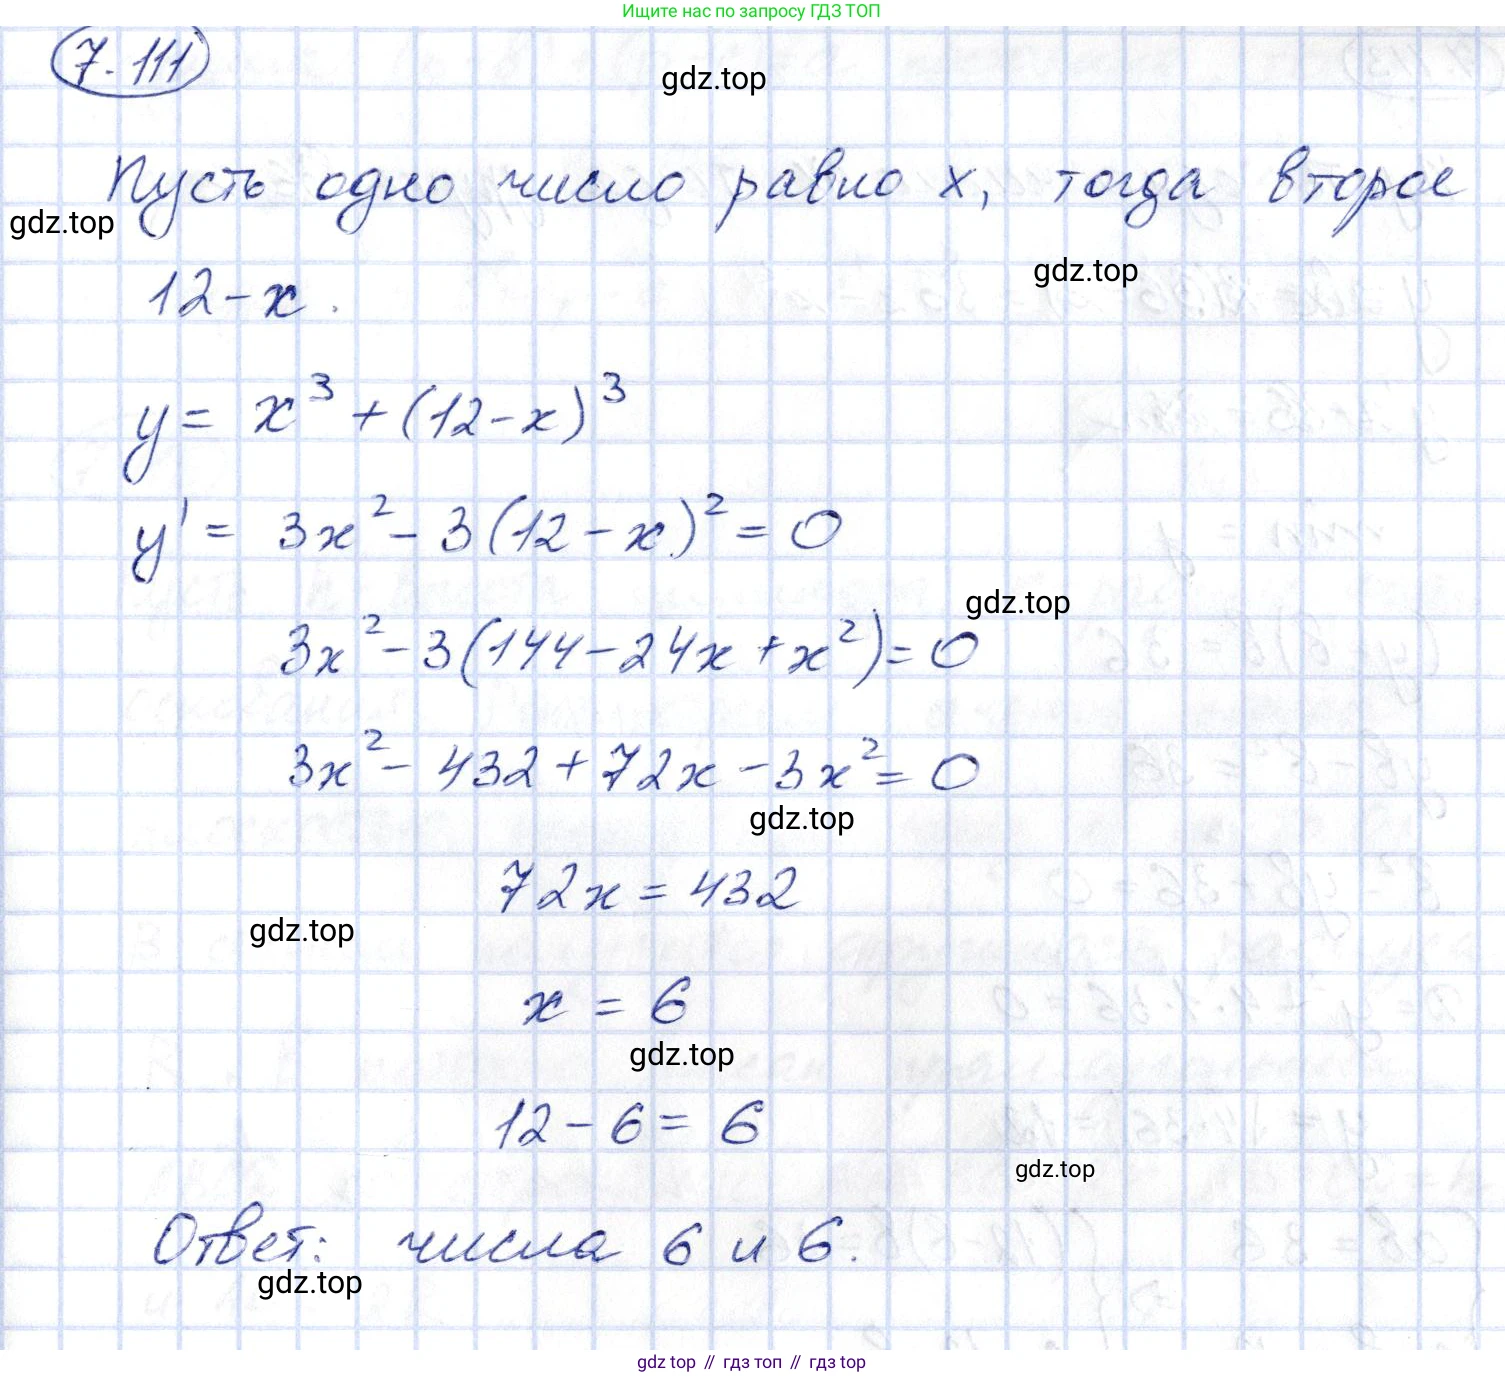 Ищите нас по запросу ГДЗ ТОП
7.111
gdz.top
Пусть одно число равно x, тогда второе
gdz.top
12-x.
gdz.top
y = x³ + (12-x)³
y' = 3x² - 3(12-x)² = 0
gdz.top
3x² - 3(144-24x+x²) = 0
3x² - 432 + 72x - 3x² = 0
gdz.top
72x = 432
gdz.top
x = 6
gdz.top
12 - 6 = 6
gdz.top
Ответ: числа 6 и 6.
gdz.top
gdz top // гдз топ // гдз top